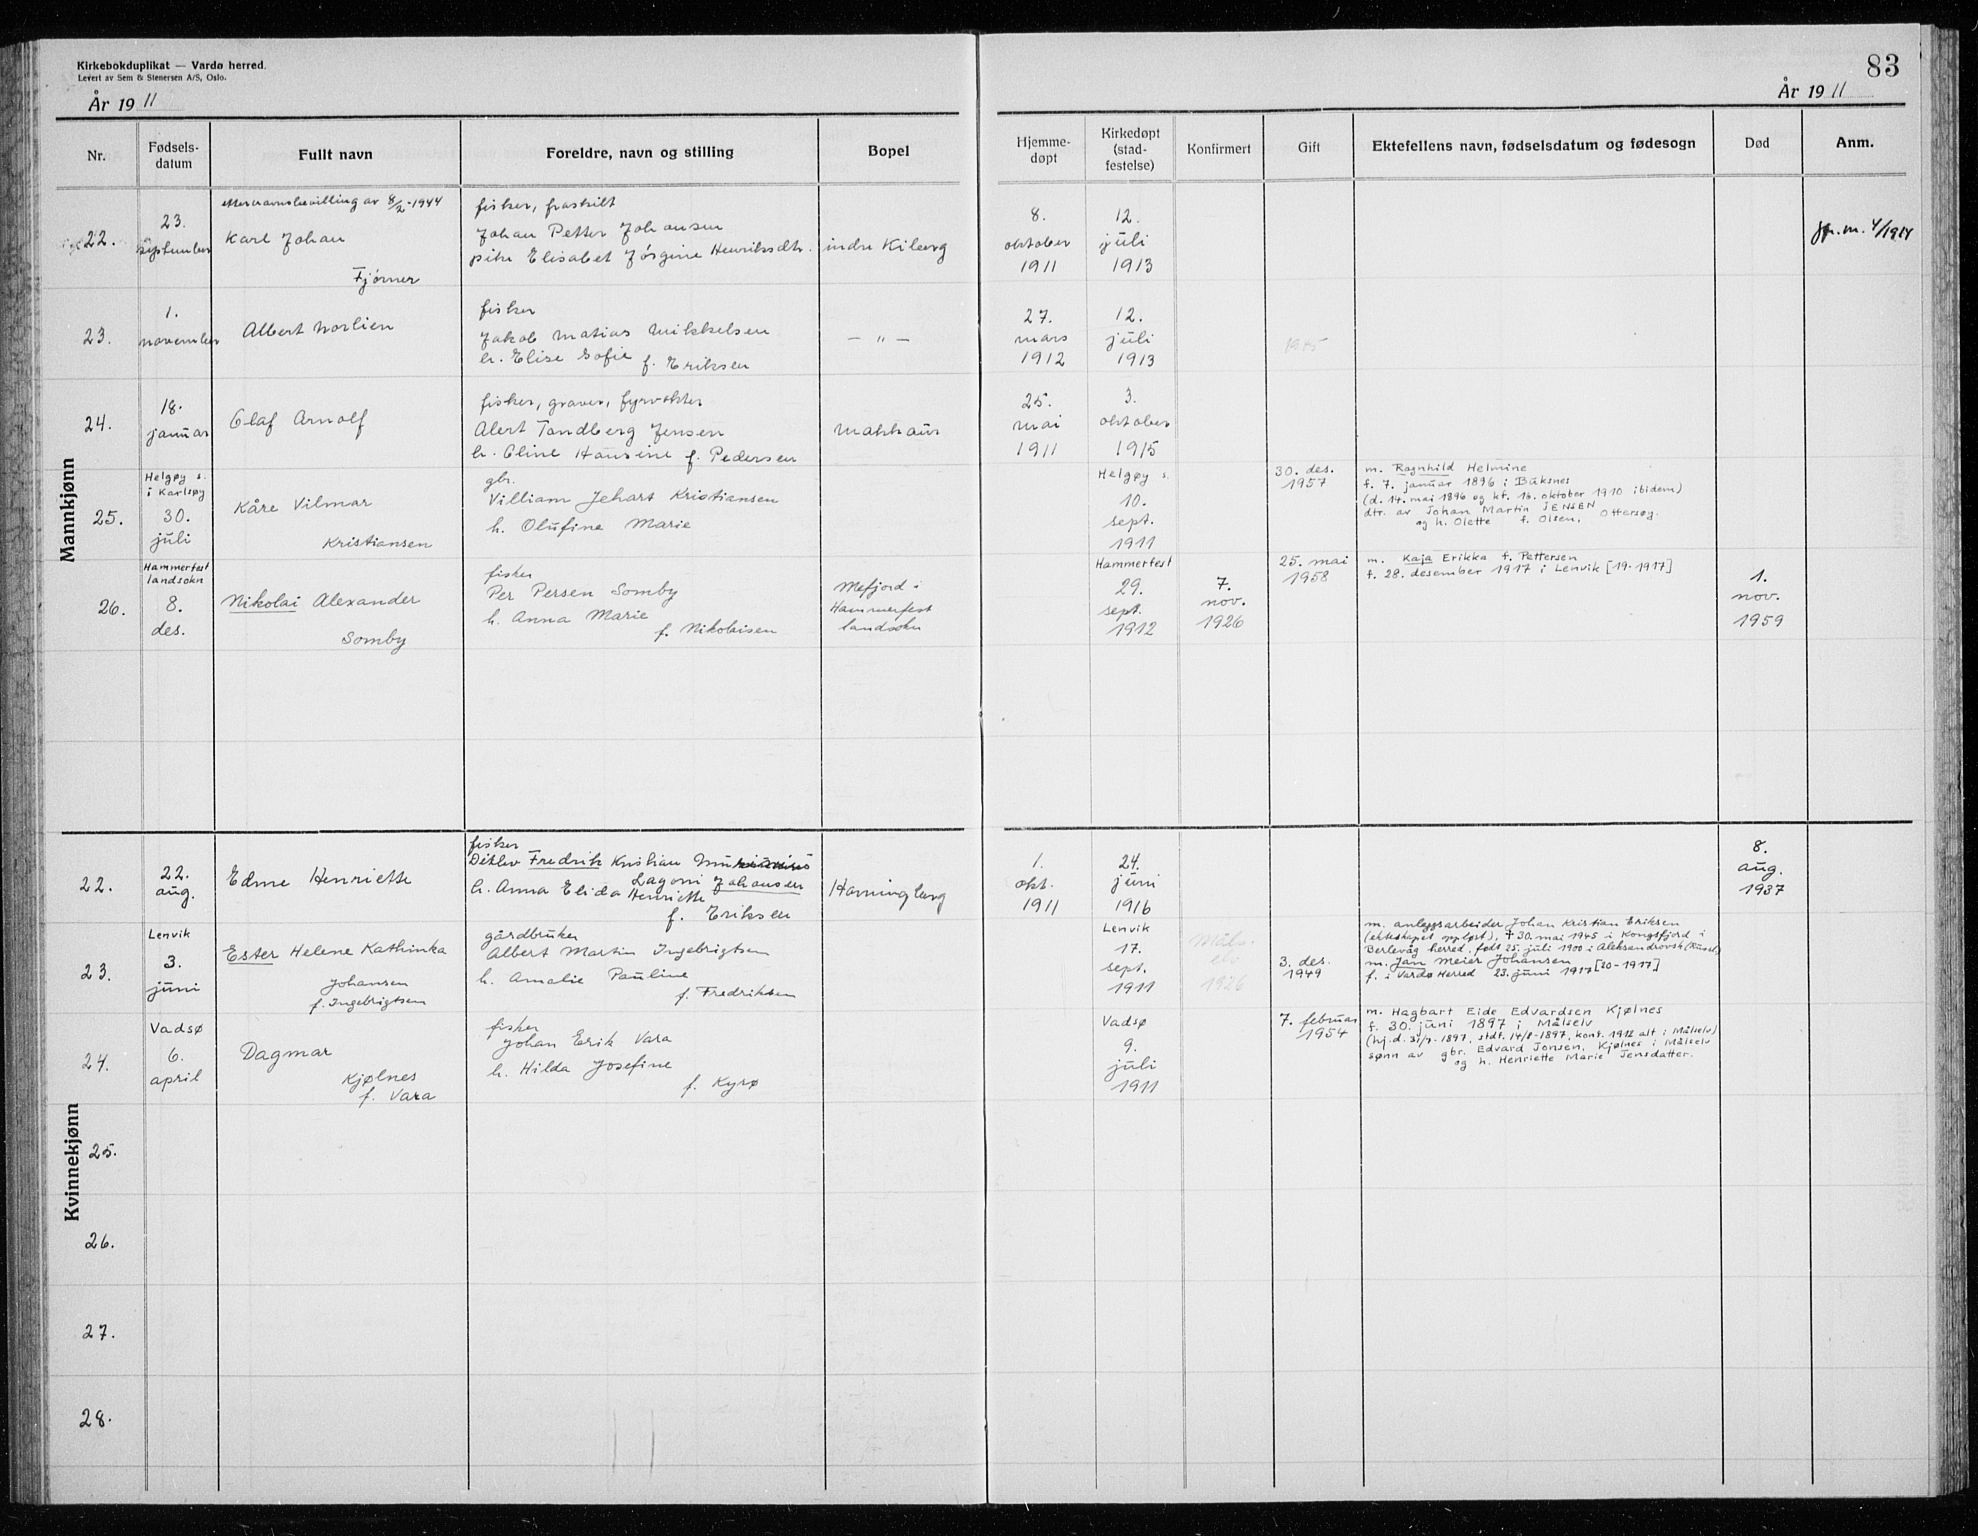 Kirkebokduplikat — Vardø herred.
Levert av Sem & Stenersen A/S, Oslo.
År 19 11
83
År 19 11
Nr.
Fødsels-
datum
Fullt navn
Foreldre, navn og stilling
Bopel
Hjemme-
døpt
Kirkedøpt
(stad-
festelse)
Konfirmert
Gift
Ektefellens navn, fødselsdatum og fødesogn
Død
Anm.
Mannkjønn
22.
23.
september
etter navnebevilling av 8/2-1944
Karl Johan
Fjørner
fisker, fraskilt
Johan Petter Johansen
pike Elisabet Jørgine Henriksdtr.
indre Kiberg
8.
oktober
1911
12.
juli
1913
jfr. m. 4/1914
23.
1.
november
Albert Norlien
fisker
Jakob Matias Mikkelsen
h. Elise Sofie f. Eriksen
— " —
27.
mars
1912
12.
juli
1913
24.
18.
januar
Olaf Arnolf
fisker, graver, fyrvokter
Alert Tandberg Jensen
h. Oline Hansine f. Pedersen
Makkaur
25.
mai
1911
3.
oktober
1915
25.
Helgøy s.
i Karlsøy
30.
juli
Kåre Vilmar
Kristiansen
gbr.
Villiam Jehart Kristiansen
h. Olufine Marie
Helgøy s.
10.
sept.
1911
30. des.
1957
m. Ragnhild Helmine
f. 7. januar 1896 i Buksnes
(d. 14. mai 1896 og kf. 16. oktober 1910 ibidem)
dtr. av Johan Martin JENSEN
og h. Olette f. Olsen, Ottersøy.
26.
Hammerfest
landsokn
8.
des.
Nikolai Alexander
Somby
fisker
Per Persen Somby
h. Anna Marie
f. Nikolaisen
Mefjord i
Hammerfest
landsokn
Hammerfest
29.
sept.
1912
7.
nov.
1926
25. mai
1958
m. Kaja Erikka f. Pettersen
f. 28. desember 1917 i Lenvik [19-1917]
1.
nov.
1959
Kvinnekjønn
22.
22.
aug.
Edme Henriette
fisker
Ditlev Fredrik Kristian
Lagoni Johansen
h. Anna Elida Henriette
f. Eriksen
Hamningberg
1.
okt.
1911
24.
juni
1916
8.
aug.
1937
23.
Lenvik
3.
juni
Ester Helene Kathinka
Johansen
f. Ingebrigtsen
gårdbruker
Albert Martin Ingebrigtsen
h. Amalie Pauline
f. Fredriksen
Lenvik
17.
sept.
1911
Måls-
elv
1926
3. des.
1949
m. anleggsarbeider Johan Kristian Eriksen
(ekteskapet oppløst), † 30. mai 1945 i Kongsfjord i
Berlevåg herred, født 25. juli 1900 i Aleksandrovsk (Russl.)
m. Jan Meier Johansen
f. i Vardø Herred 23. juni 1917 [20-1917]
24.
Vadsø
6.
april
Dagmar
Kjølnes
f. Vara
fisker
Johan Erik Vara
h. Hilda Josefine
f. Kyrø
Vadsø
9.
juli
1911
7. februar
1954
m. Hagbart Eide Edvardsen Kjølnes
f. 30. juni 1897 i Målselv
(hj.d. 31/7-1897, stdf. 14/8-1897, konf. 1912 alt i Målselv)
sønn av gbr. Edvard Jonsen, Kjølnes i Målselv
og h. Henriette Marie Jensdatter.
25.
26.
27.
28.